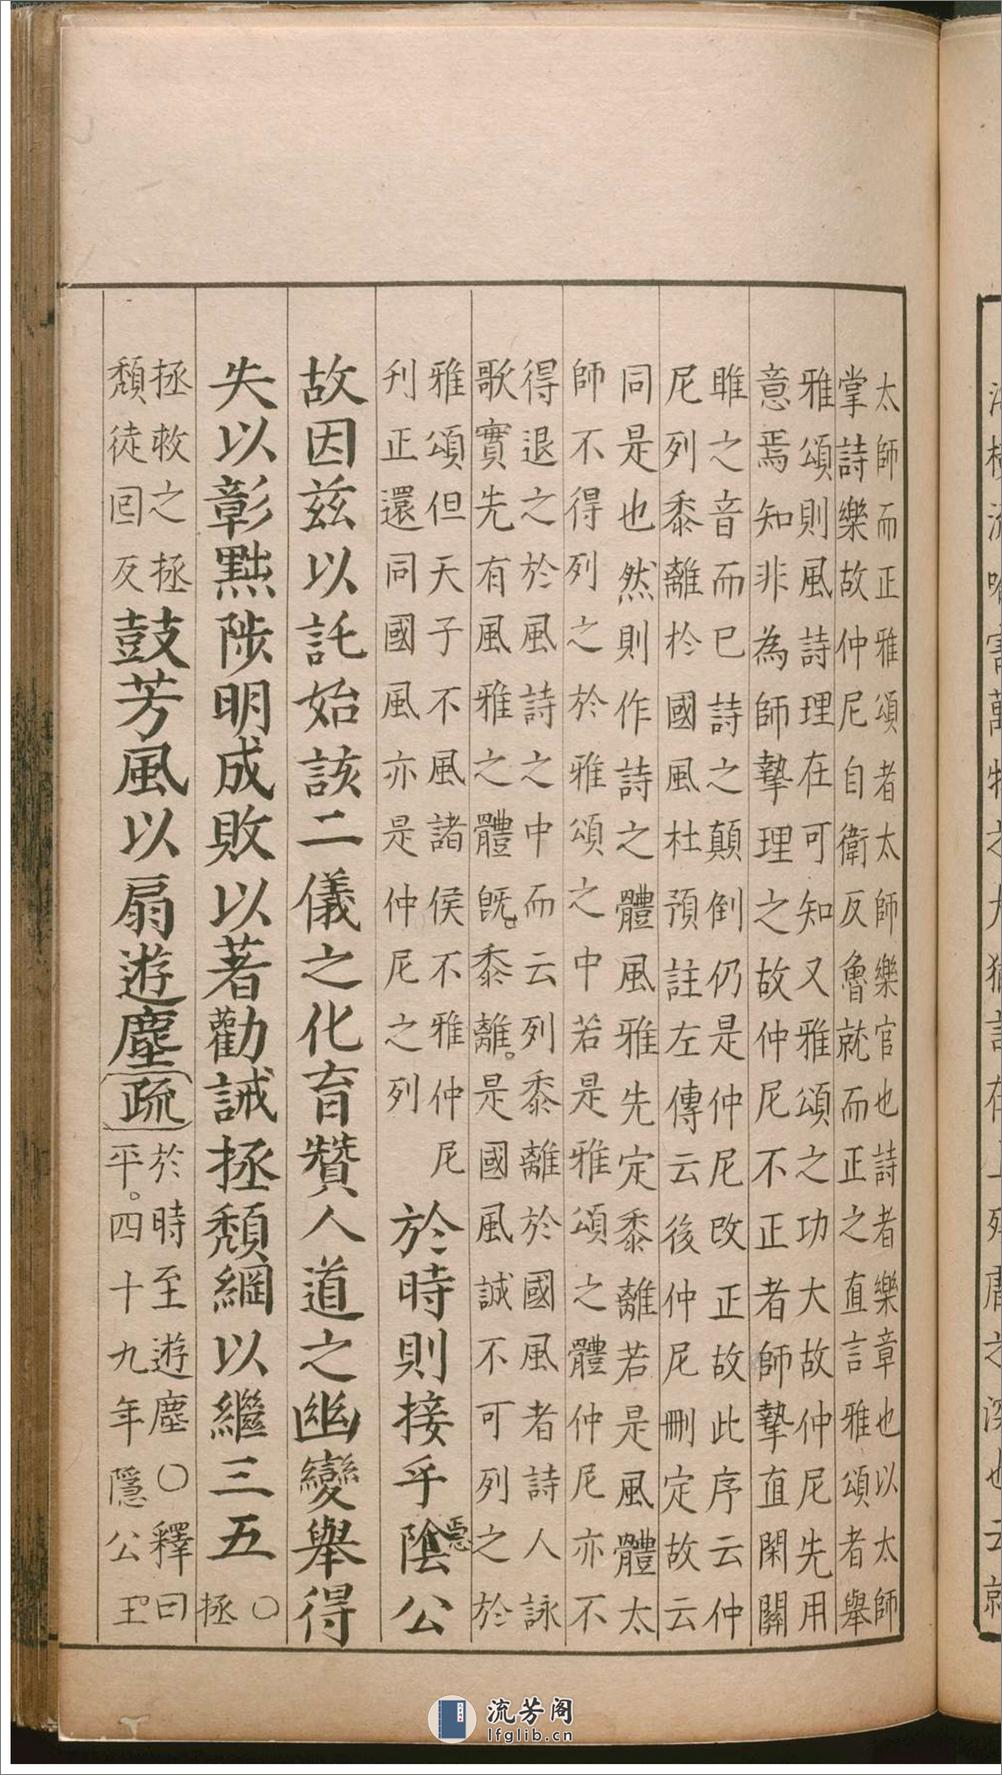 太師而正雅頌者太師樂官也詩者樂章也以太師
掌詩樂故仲尼自衛反魯就而正之直言雅頌者舉
雅頌則風詩理在可知又雅頌之功大故仲尼先用
意焉知非為師摯理之故仲尼不正者師摯直閑關
雎之音而已詩之顛倒仍是仲尼改正故此序云仲
尼列黍離於國風杜預註左傳云後仲尼刪定故云
同是也然則作詩之體風雅先定黍離若是風體太
師不得列之於雅頌之中若是雅頌之體仲尼亦不
得退之於風詩之中而云列黍離於國風者詩人詠
歌實先有風雅之體旣黍離是國風誠不可列之於
雅頌但天子不風諸侯不雅仲尼
刋正還同國風亦是仲尼之列
於時則接乎隱公
故因茲以託始該二儀之化育贊人道之幽變舉得
失以彰黜陟明成敗以著勸誡拯頹綱以繼三五○拯
拯救之拯
頹徒回反
鼓芳風以扇遊塵疏
於時至遊塵○釋曰
平四十九年隱公王
流芳阁
lfglib.cn